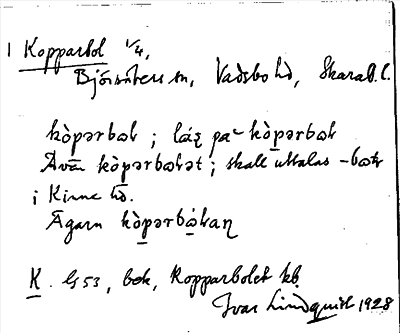 1 Kopparbol 1/4,
Björsäters sn, Vadsbo hd, Skarab. l.
kòpərbək ; läg på kòpərbək
Även kòpərbəkət ; skall uttalas -bək
i Kinne hd.
Ägarn kòpərbə́kaɳ
K. G53, bok, Kopparbolet kb
Ivar Lindquist 1928